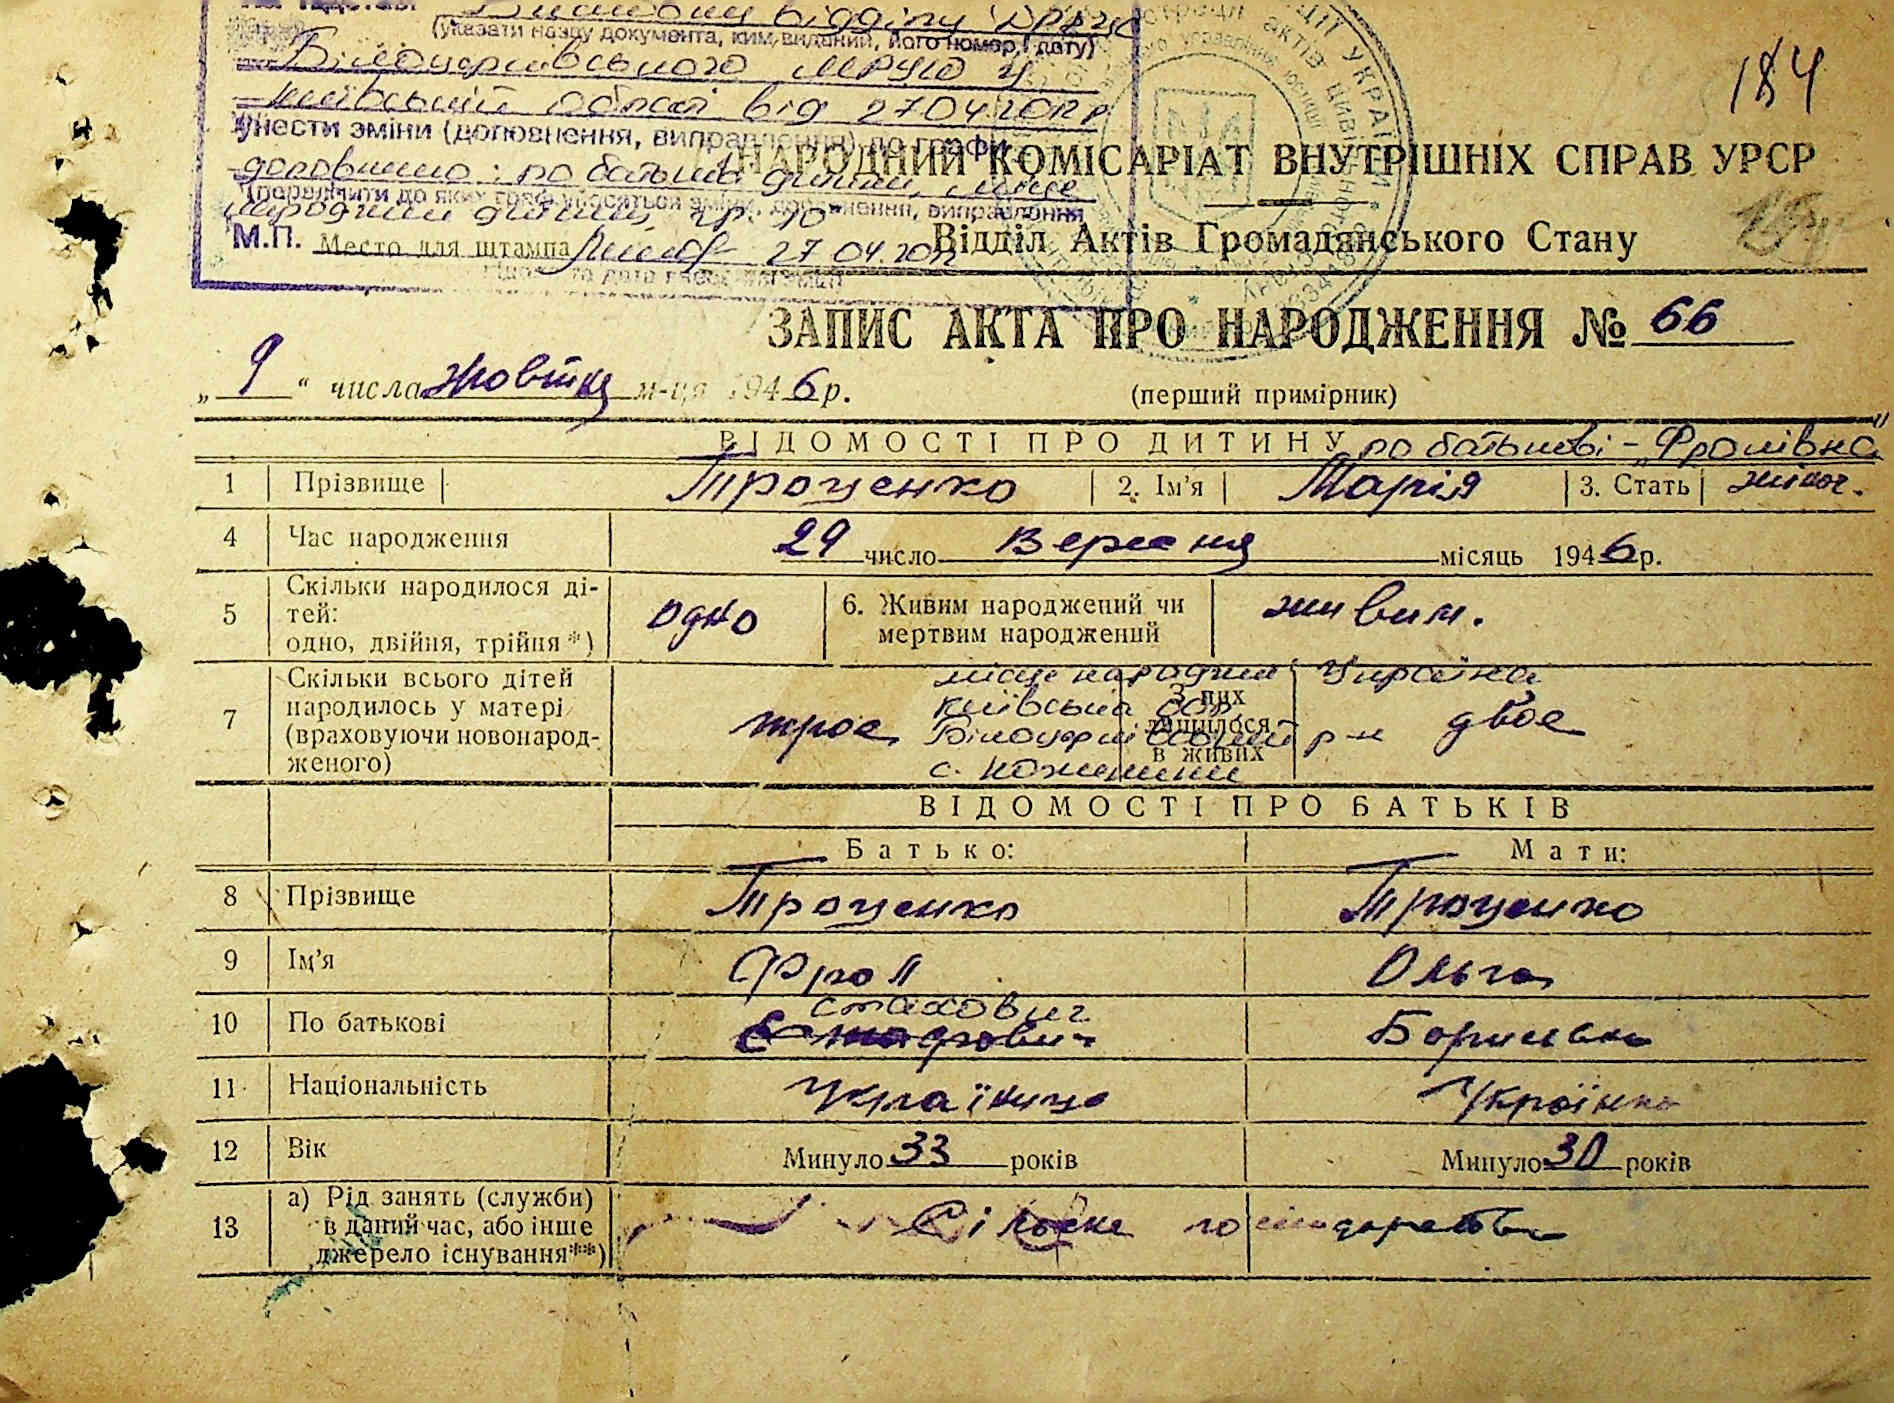 На підставі Висновку відділу ДРАЦС
(указати назву документа, ким виданий, його номер, дату)
Білоцерківського МРУЮ у
Київській області від 27.04.2012 р
Унести зміни (доповнення, виправлення) до графи
доповнено: по батькові дитини, місце
(перелічити до яких граф вносяться зміни, доповнення, виправлення
народження дитини, гр. 10
М.П. Место для штампа 27.04.2012
184
НАРОДНИЙ КОМІСАРІАТ ВНУТРІШНІХ СПРАВ УРСР
Відділ Актів Громадянського Стану
ЗАПИС АКТА ПРО НАРОДЖЕННЯ № 66
„ 9 “ числа жовтня м-ця 1946 р.
(перший примірник)
ВІДОМОСТІ ПРО ДИТИНУ по батькові - „Фролівна"
1 Прізвище Троценко 2. Ім’я Марія 3. Стать жіноч.
4 Час народження 29 число Вересня місяць 1946 р.
5 Скільки народилося ді-
тей:
одно, двійня, трійня*) одно 6. Живим народжений чи
мертвим народжений живим.
7 Скільки всього дітей
народилось у матері
(враховуючи новонарод-
женого) троє З них
лишилося
в живих двоє
місце народжен Україна
Київська обл.
Білоцерківський р-н
с.
ВІДОМОСТІ ПРО БАТЬКІВ
Батько: Мати:
8 Прізвище Троценко Троценко
9 Ім’я Фрол Ольга
10 По батькові Стахович Борисівна
11 Національність Українець Українка
12 Вік Минуло 33 років Минуло 30 років
13 а) Рід занять (служби)
в даний час, або інше
джерело існування**) Сільське господарство